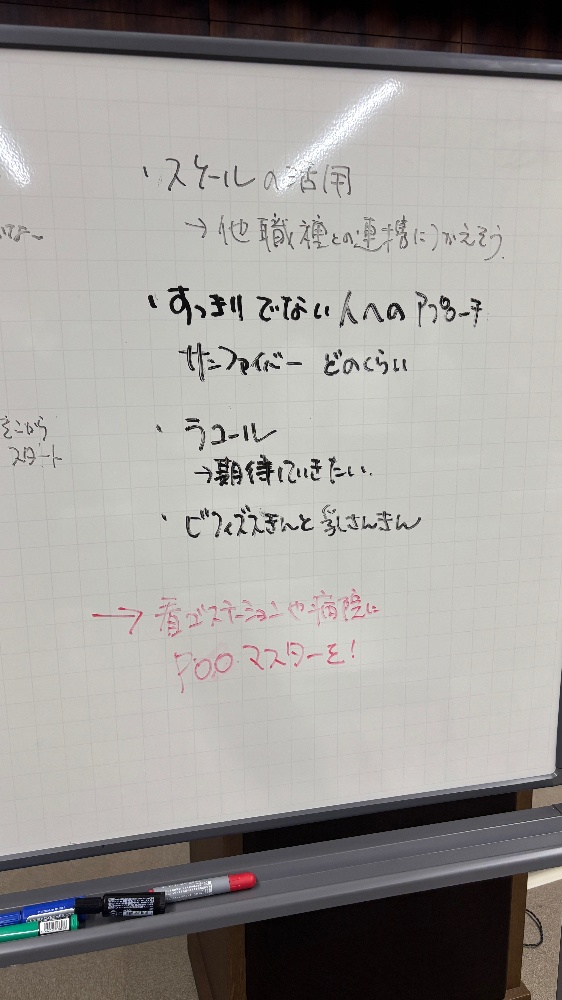 ・スケールの活用
→他職種との連携につかえそう
・すっきりでない人へのアプローチ
サンファイバー どのくらい
そこから
スタート
・ラコール
→期待していきたい.
・ビフィズスきんと乳さんきん
→看ゴステーションや病院に
POOマスターを!